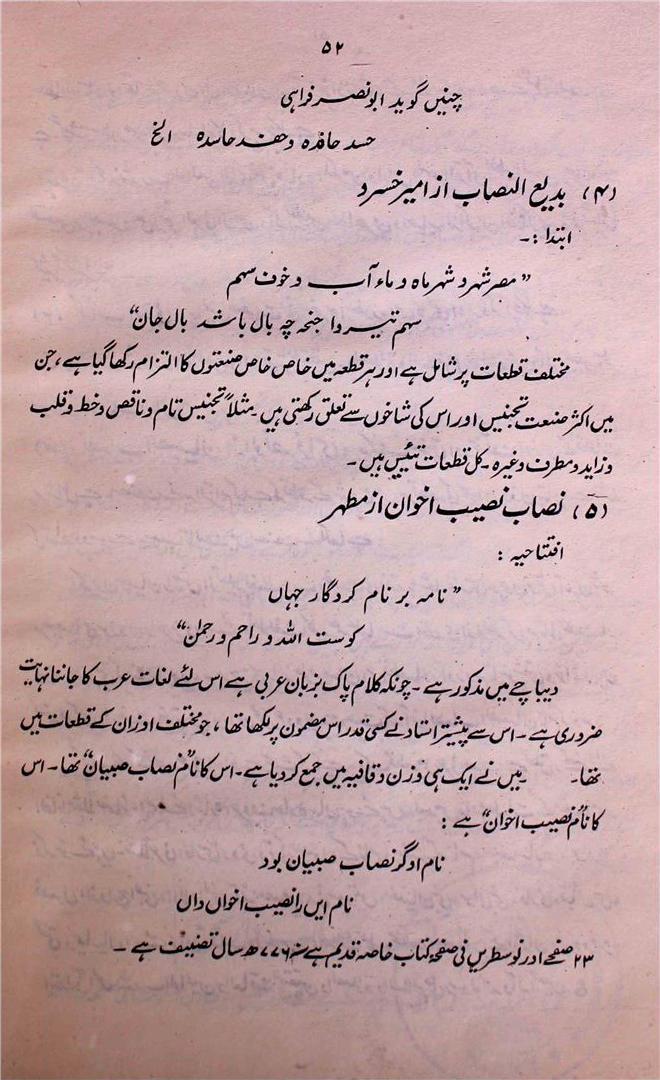 ۵۲
چنیں گوید ابو نصر فراہی
حسد حافدہ و حفند حاسدہ الخ
(۴) بدیع النصاب از امیر خسرو
ابتدا :۔
" مصر شہر و شہر ماہ و ماء آب و خوف سہم
سہم تیر و ا جنحہ چہ بال باشد بال جان"
مختلف قطعات پر شامل ہے اور ہر قطعہ میں خاص خاص صنعتوں کا التزام رکھا گیا ہے، جن
میں اکثر صنعت تجنیس اور اس کی شاخوں سے تعلق رکھتی ہیں۔ مثلاً تجنیس تام و ناقص و خط و قلب
و زاید و مطرف وغیرہ۔ کل قطعات تئیس ہیں۔
(۵) نصاب نصیب اخوان از مطہر
افتتاحیہ :
" نامہ بر نام کردگار جہاں
کوست اللہ و راحم و رحمٰن"
دیباچے میں مذکور ہے۔ چونکہ کلام پاک بزبان عربی ہے اس لئے لغات عرب کا جاننا نہایت
ضروری ہے۔ اس سے پیشتر استاد نے کسی قدر اس مضمون پر لکھا تھا، جو مختلف اوزان کے قطعات میں
تھا۔ میں نے ایک ہی وزن و قافیہ میں جمع کر دیا ہے۔ اس کا نام "نصاب صبیان" تھا۔ اس
کا نام "نصیب اخوان" ہے :
نام او گر نصاب صبیان بود
نام ایں را نصیب اخواں داں
۲۳ صفحے اور نو سطریں فی صفحہ کتاب خاصہ قدیم ہے سنہ ۷۷۶ھ سال تصنیف ہے ۔